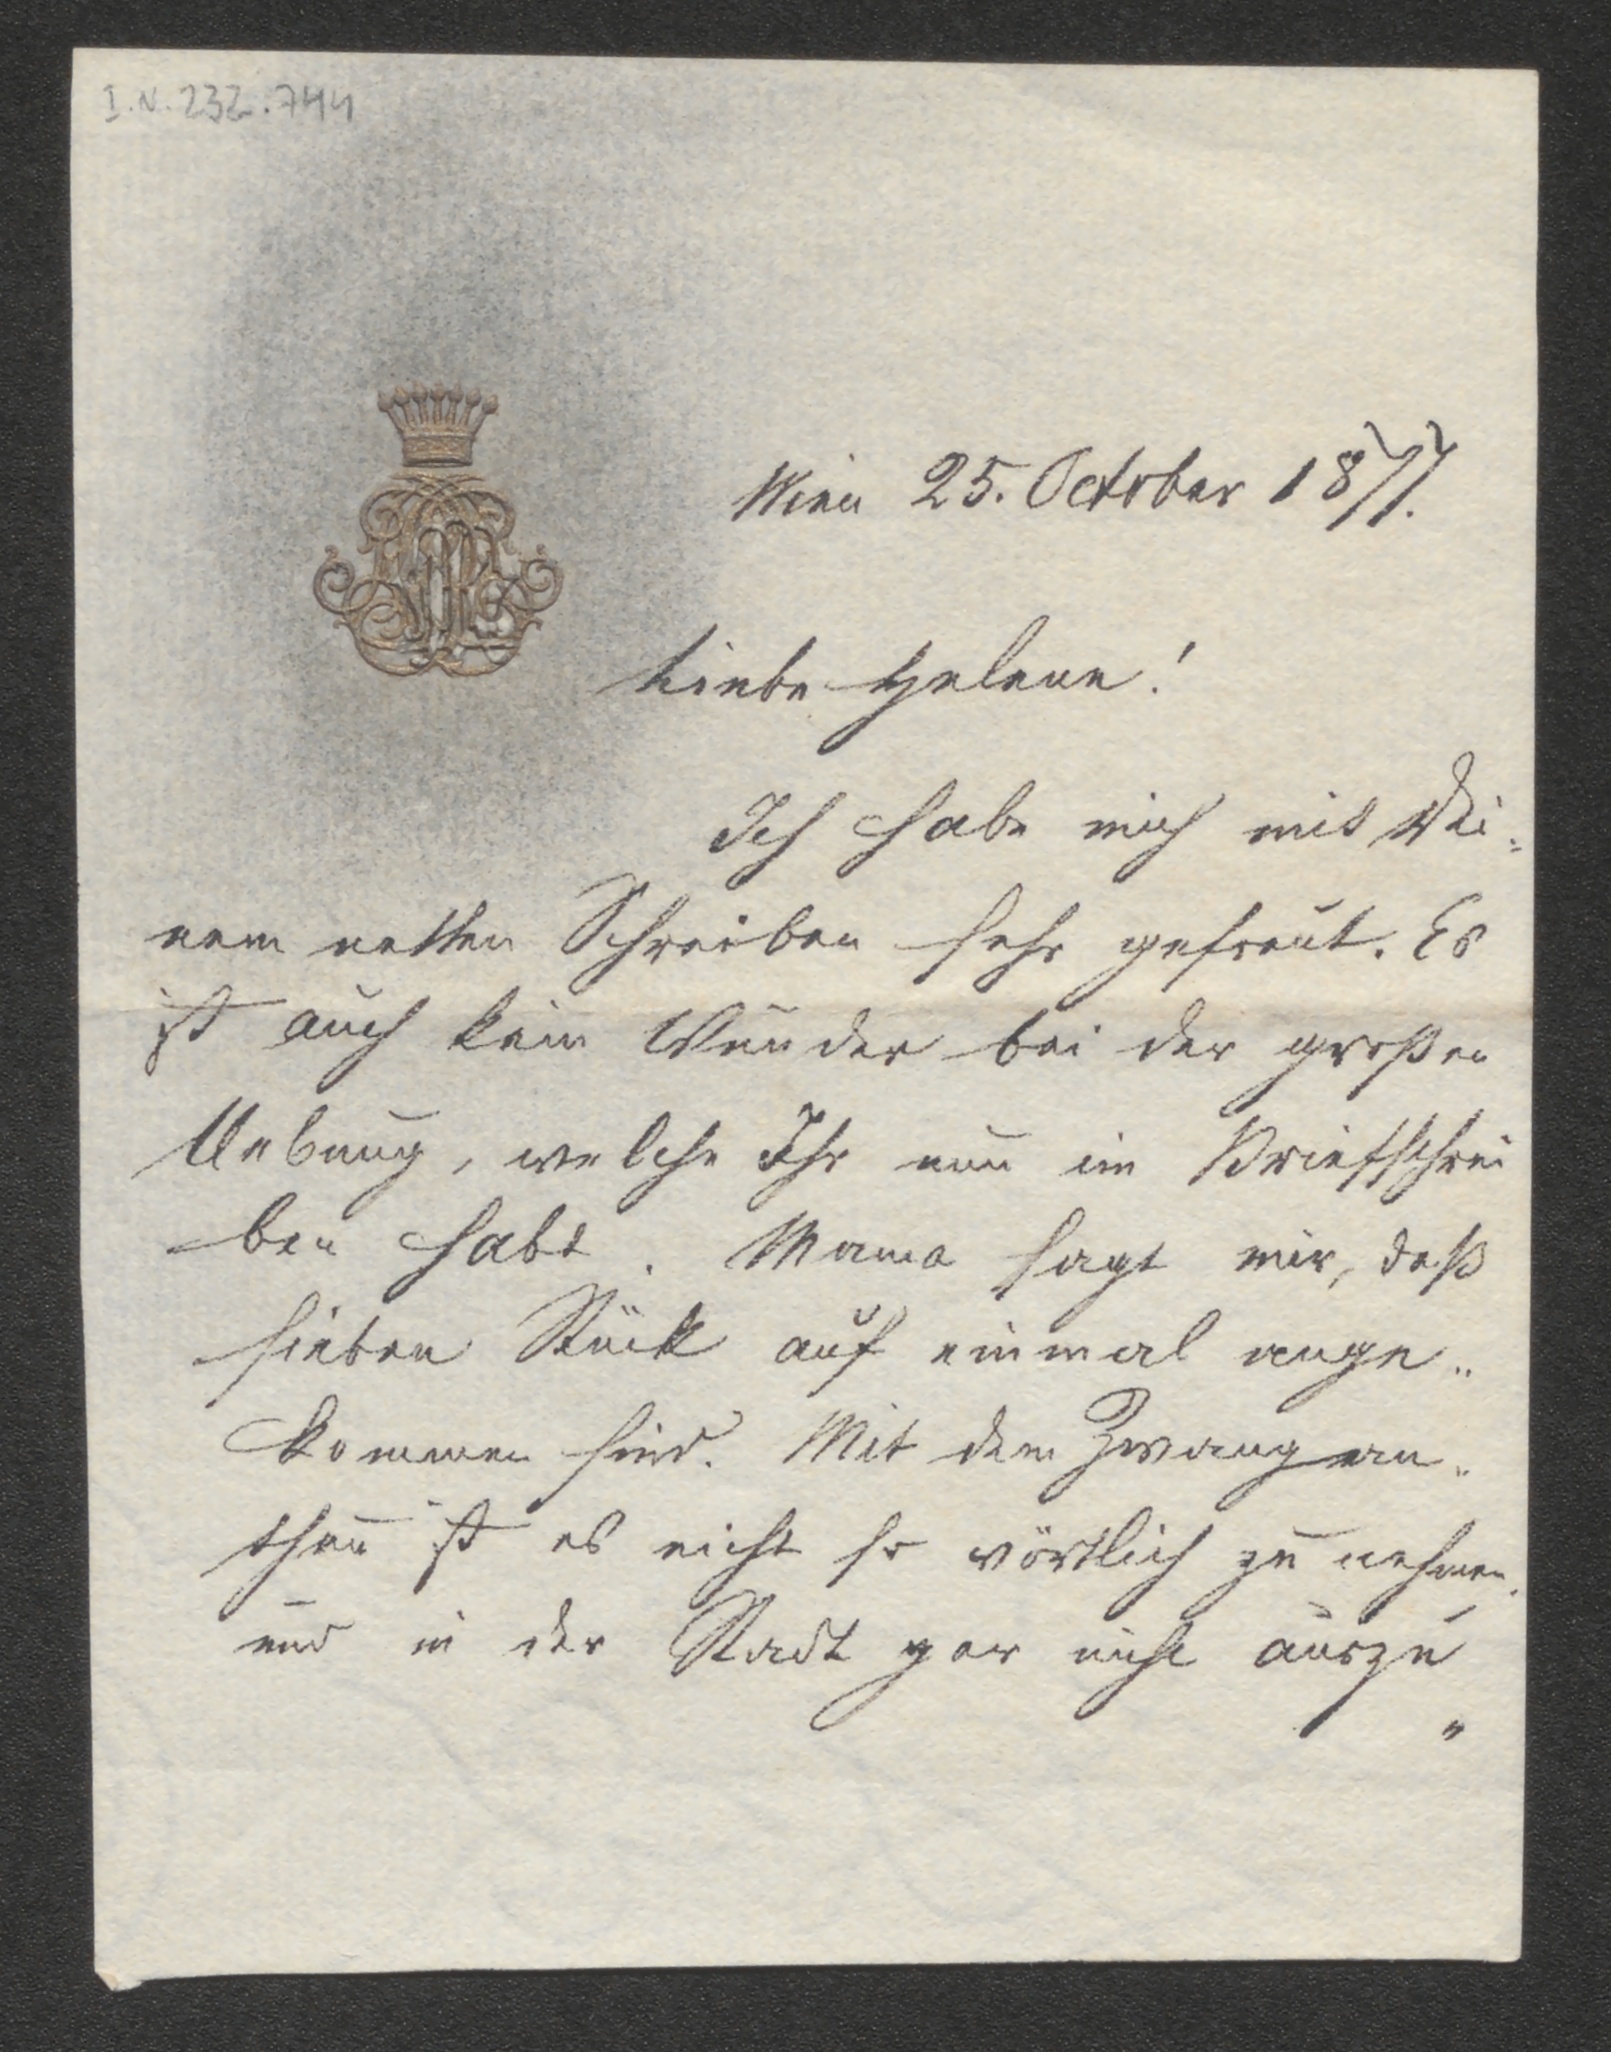 I.N. 232.744
Wien 25. October 1877.
Liebe Helene!
Ich habe mich mit Dei-
nem netten Schreiben sehr gefreut. Es
ist auch kein Wunder bei der großen
Uebung, welche Ihr nun im Briefschrei
ben habt. Mama sagt mir, daß
sieben Stück auf einmal ange-
kommen sind. Mit dem Zwang an-
thun ist es nicht so wörtlich zu nehmen,
und in der Stadt gar nicht auszu
"